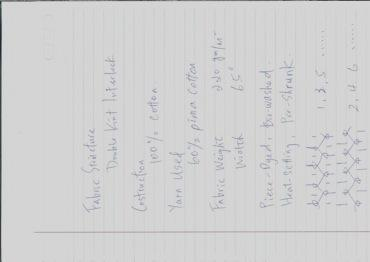 Fabric Structure
Double Knit Interlock
Construction
100% Cotton
Yarn Used
60% pima Cotton
Fabric Weight 220 gm/m²
Width 65"
Piece-Dyed, Bio-washed.
Heat-Setting, Pre-Shrunk.
1, 3, 5 ......
2, 4, 6 ......